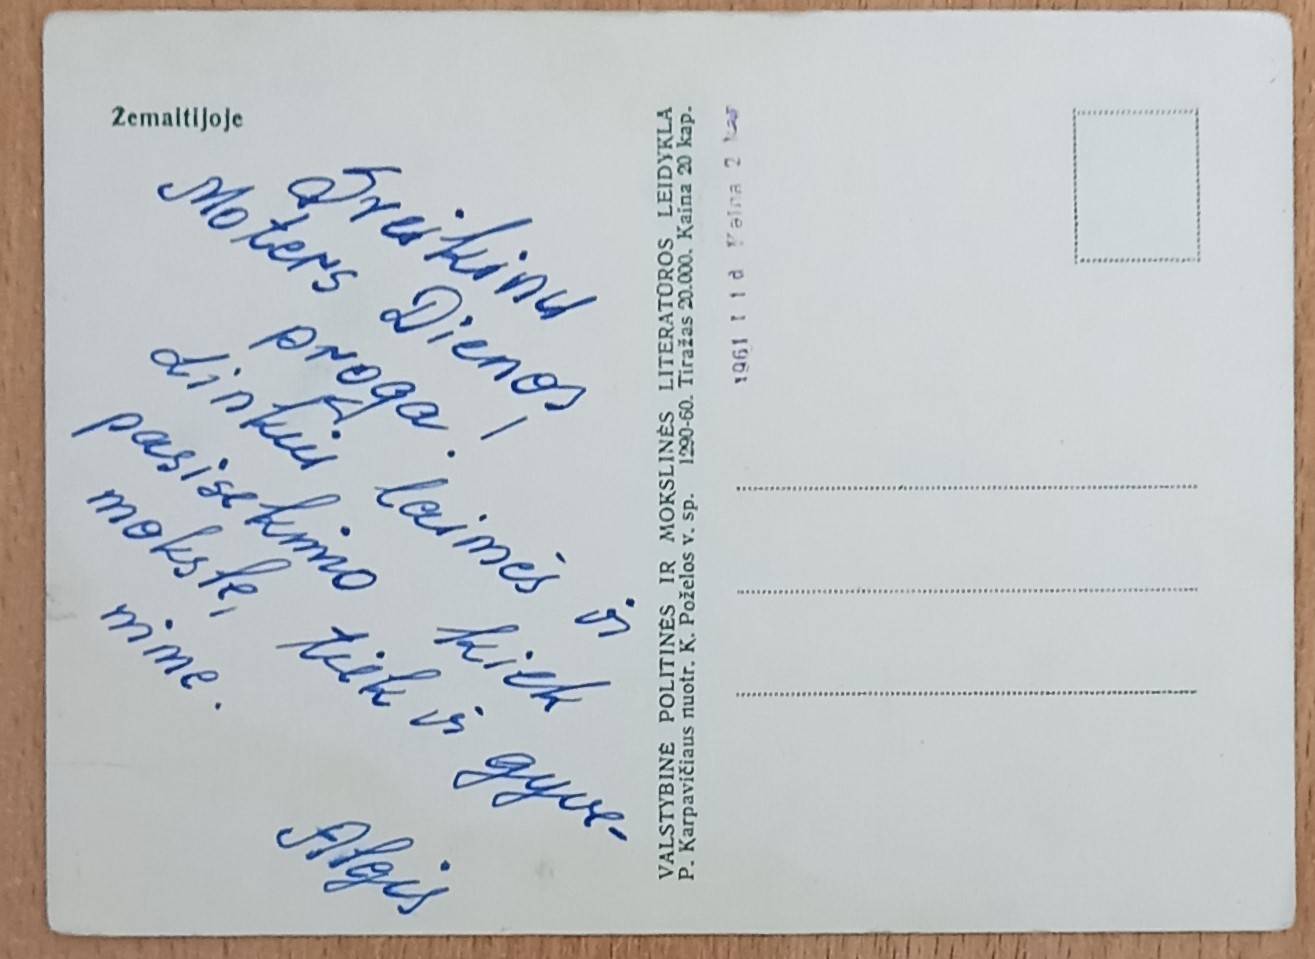 Žemaitijoje
Sveikinu
Moters Dienos
proga.
Linkiu laimės ir
pasisekimo kiek
moksle, tiek ir gyve-
nime.
Algis
VALSTYBINĖ POLITINĖS IR MOKSLINĖS LITERATŪROS LEIDYKLA
P. Karpavičiaus nuotr. K. Poželos v. sp. 1290-60. Tiražas 20.000. Kaina 20 kap.
1961 I 1 d Kaina 2 kap